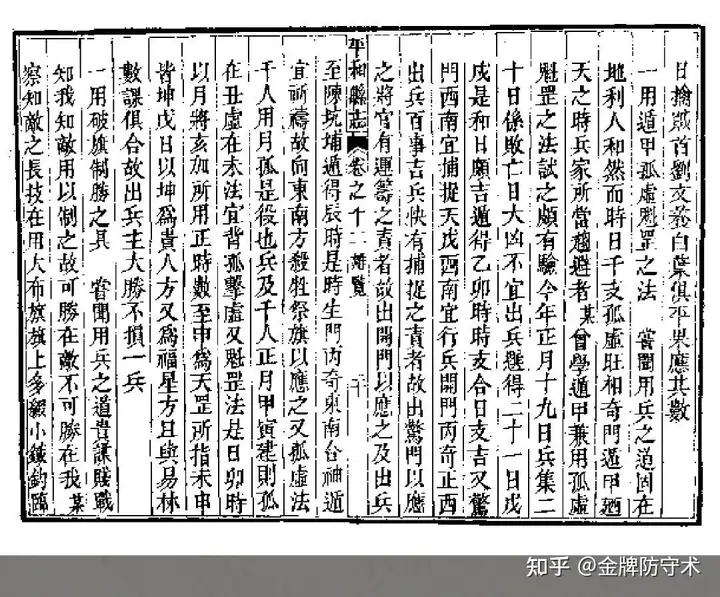 日擒賊首劉文養白葉俱平果應其數
一用遁甲孤虛魁罡之法 嘗聞用兵之道固在
地利人和然而時日干支孤虛旺相奇門遁甲廼
天之時兵家所當趨避者某曾學遁甲兼用孤虛
魁罡之法試之頗有驗今年正月十九日兵集二
十日係敗亡日大凶不宜出兵遲得二十一日戊
戌是和日頗吉遁得乙卯時時支合日支吉又驚
門西南宜捕捉天戊西南宜行兵開門丙奇正西
出兵百事吉兵快有捕捉之責者故出驚門以應
之將官有運籌之責者故出開門以應之及出兵
平和縣志 卷之十二 雜覽 十
至陳坑埔遁得辰時是時生門丙奇東南台神遁
宜祈禱故向東南方殺牲祭旗以應之又孤虛法
千人用月孤是役也兵及千人正月甲寅建則孤
在丑虛在未法宜背孤擊虛又魁罡法是日卯時
以月將亥加所用正時數至申為天罡所指未申
皆坤戊日以坤為貴人方又為福星方且與易林
數課俱合故出兵主大勝不損一兵
一用破旗制勝之具 嘗聞用兵之道貴謀賤戰
知我知敵用以制之故可勝在敵不可勝在我某
察知敵之長技在用大布旗旗上多綴小鐵鈎臨
知乎 @金牌防守术